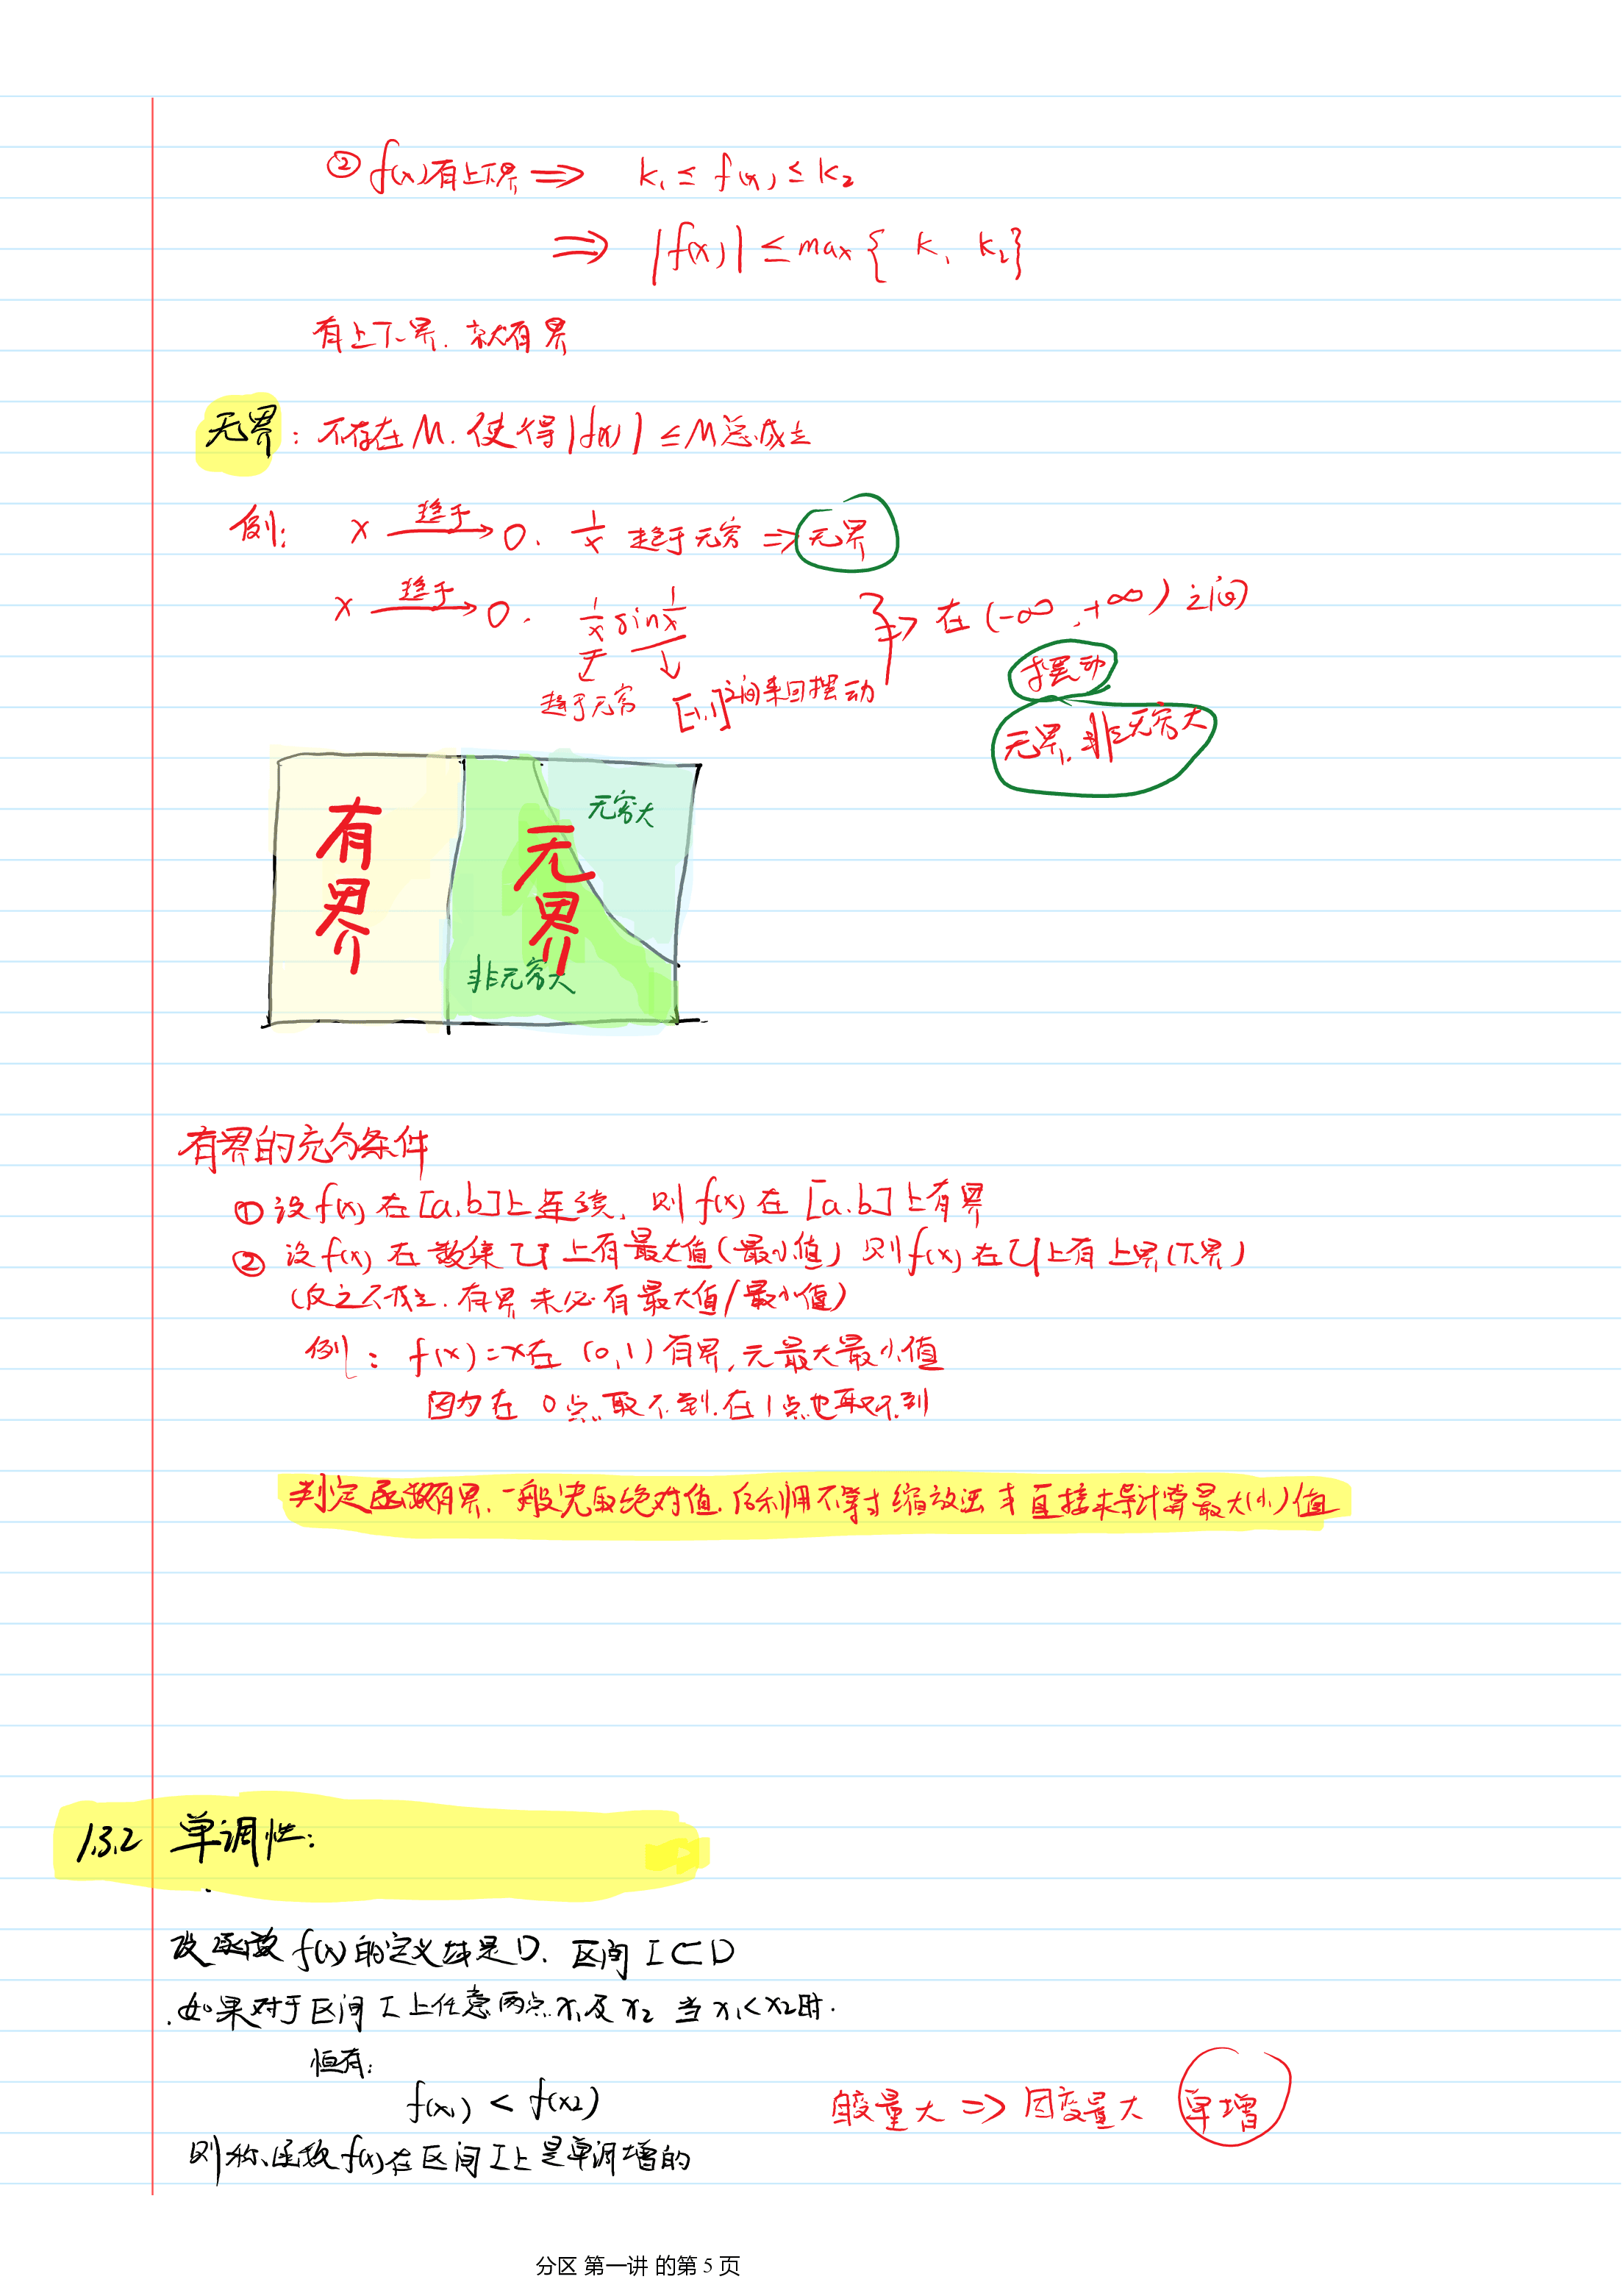 ② f(x)有上下界 ⟹ k₁ ≤ f(x) ≤ k₂
⟹ |f(x)| ≤ max{ k₁ k₂}
有上下界. 就有界
无界: 不存在M. 使得|f(x)| ≤M总成立
例: x 趋于→ 0. 1/x 趋于无穷 ⇒ 无界
x 趋于→ 0. 1/x sin 1/x } ⇒ 在(-∞, +∞)之间
摆动
趋于无穷 [-1,1]之间来回摆动
无界, 非无穷大
有界
无界
无穷大
非无穷大
有界的充分条件
① 设f(x)在[a,b]上连续, 则f(x)在[a.b]上有界
② 设f(x)在数集U上有最大值(最小值)则f(x)在U上有上界(下界)
(反之不成立. 有界未必有最大值/最小值)
例: f(x)=x在(0,1)有界, 无最大最小值
因为在0点取不到.在1点也取不到
判定函数有界, 一般先取绝对值. 后利用不等式缩放法 或直接求导计算最大(小)值
1.3.2 单调性:
设函数f(x)的定义域是D. 区间I⊂D
.如果对于区间I上任意两点x₁及x₂ 当x₁<x₂时.
恒有:
f(x₁) < f(x₂)
自变量大 ⇒ 因变量大 单增
则称函数f(x)在区间I上是单调增的
分区 第一讲 的第 5 页